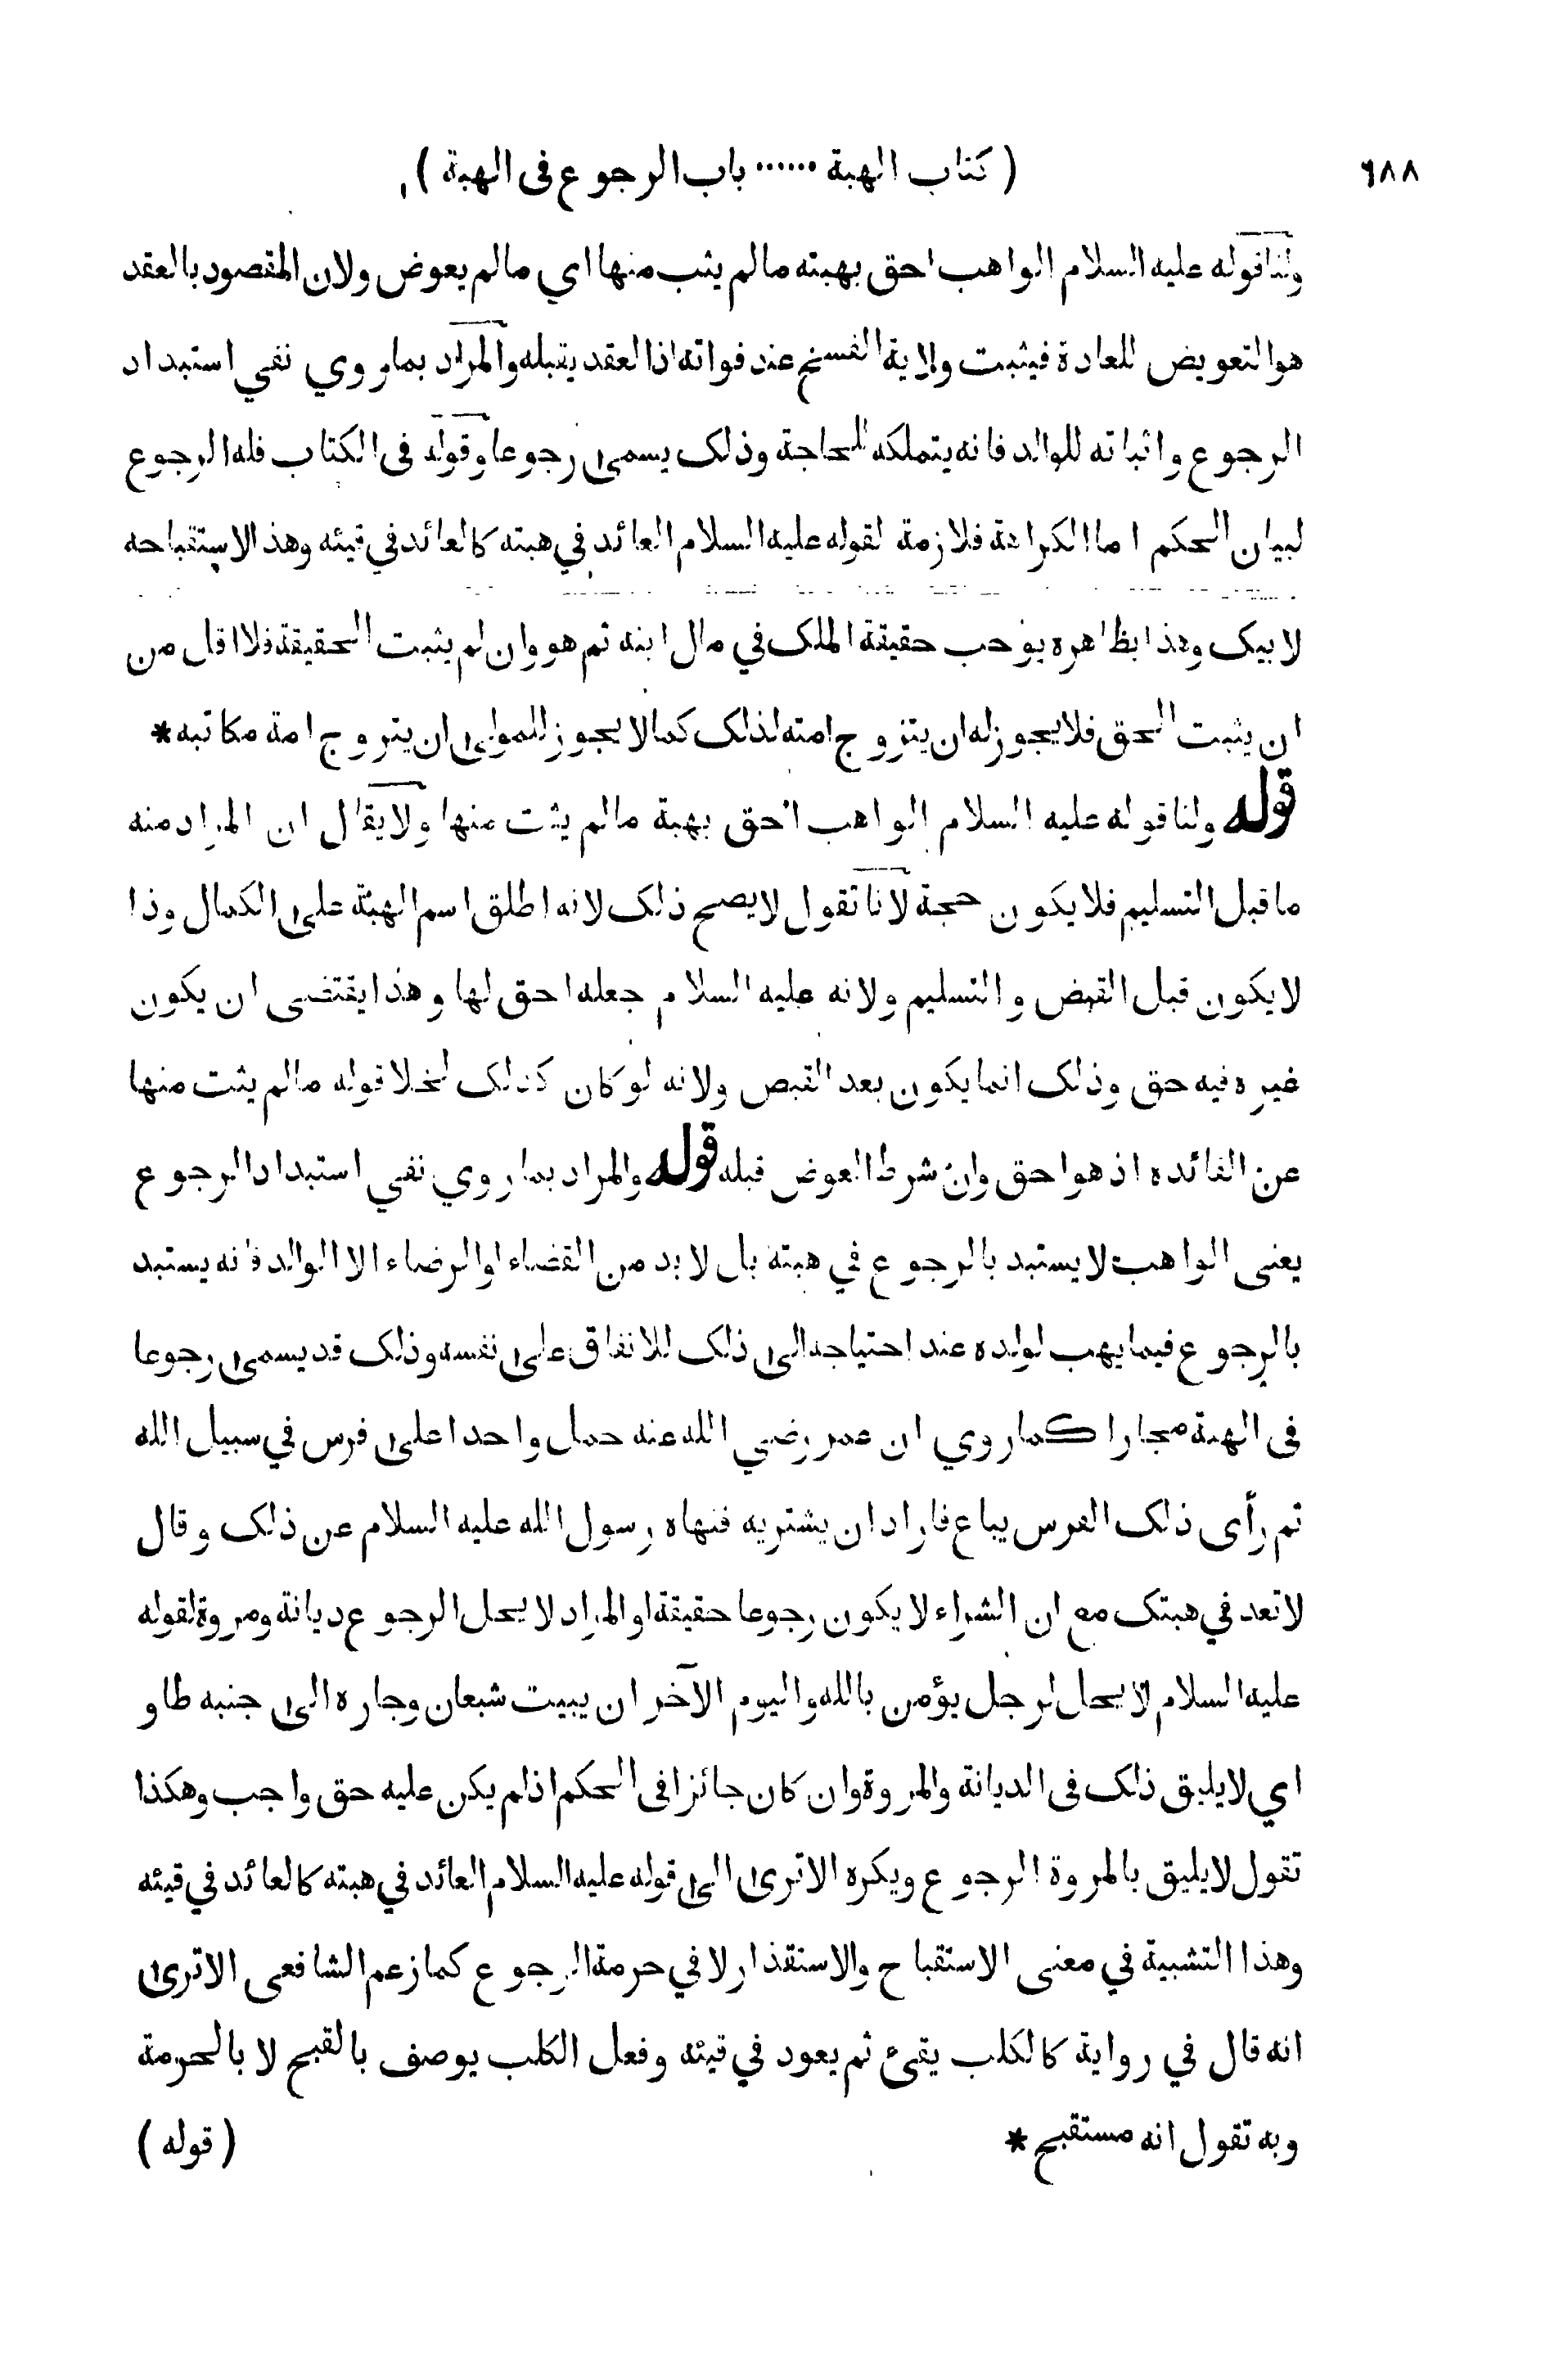 ٦٨٨
( كتاب الهبة ...... باب الرجوع فى الهبة )
ولنا قوله عليه السلام الواهب احق بهبته مالم يثب منها اي مالم يعوض ولان المقصود بالعقد
هو التعويض للعادة فيثبت ولاية الفسخ عند فواته اذ العقد يقبله والمراد بما روي نفي استبداد
الرجوع واثباته للوالد فانه يتملكه للحاجة وذلك يسمى رجوعا وقوله فى الكتاب فله الرجوع
لبيان الحكم اما الكراهة فلازمة لقوله عليه السلام العائد في هبته كالعائد في قيئه وهذا لاستقباحه
لابيك وهذا بظاهره يوجب حقيقة الملك في مال ابنه ثم هو وان لم يثبت الحقيقة فلا اقل من
ان يثبت الحق فلا يجوز له ان يتزوج امته لذلك كما لا يجوز للمولى ان يتزوج امة مكاتبه *
قوله ولنا قوله عليه السلام الواهب احق بهبة مالم يثت منها ولا يقال ان المراد منه
ما قبل التسليم فلا يكون حجة لانا نقول لا يصح ذلك لانه اطلق اسم الهبة على الكمال وذا
لا يكون قبل القبض والتسليم ولانه عليه السلام جعله احق لها وهذا يقتضى ان يكون
غيره فيه حق وذلك انما يكون بعد القبض ولانه لو كان كذلك لخلا قوله مالم يثت منها
عن الفائده اذ هو احق وان شرط العوض قبله قوله والمراد بما روي نفي استبداد الرجوع
يعنى الواهب لا يستبد بالرجوع في هبته بل لا بد من القضاء او الرضاء الا الوالد فانه يستبد
بالرجوع فيما يهب لولده عند احتياجه الى ذلك للانفاق على نفسه وذلك قد يسمى رجوعا
فى الهبة مجازا كما روي ان عمر رضي الله عنه حمل واحدا على فرس في سبيل الله
ثم رأى ذلك الفرس يباع فاراد ان يشتريه فنهاه رسول الله عليه السلام عن ذلك وقال
لا تعد في هبتك مع ان الشراء لا يكون رجوعا حقيقة او المراد لا يحل الرجوع ديانة ومروة لقوله
عليه السلام لا يحل لرجل يؤمن بالله واليوم الآخر ان يبيت شبعان وجاره الى جنبه طاو
اي لا يليق ذلك فى الديانة والمروة وان كان جائزا فى الحكم اذ لم يكن عليه حق واجب وهكذا
تقول لا يليق بالمروة الرجوع ويكره الا ترى الى قوله عليه السلام العائد في هبته كالعائد في قيئه
وهذا التشبية في معنى الاستقباح والاستقذار لا في حرمة الرجوع كما زعم الشافعى الا ترى
انه قال في رواية كالكلب يقئ ثم يعود في قيئه وفعل الكلب يوصف بالقبح لا بالحرمة
وبه تقول انه مستقبح *
( قوله )